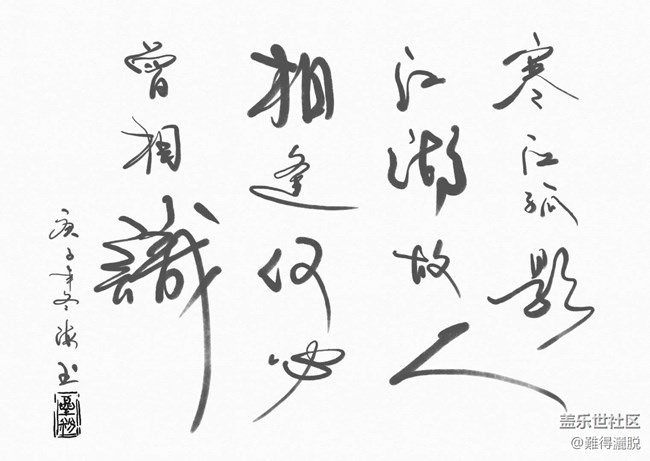 寒江孤影
江湖故人
相逢何必
曾相識
庚子年冬海玉
盖乐世社区
@難得灑脱